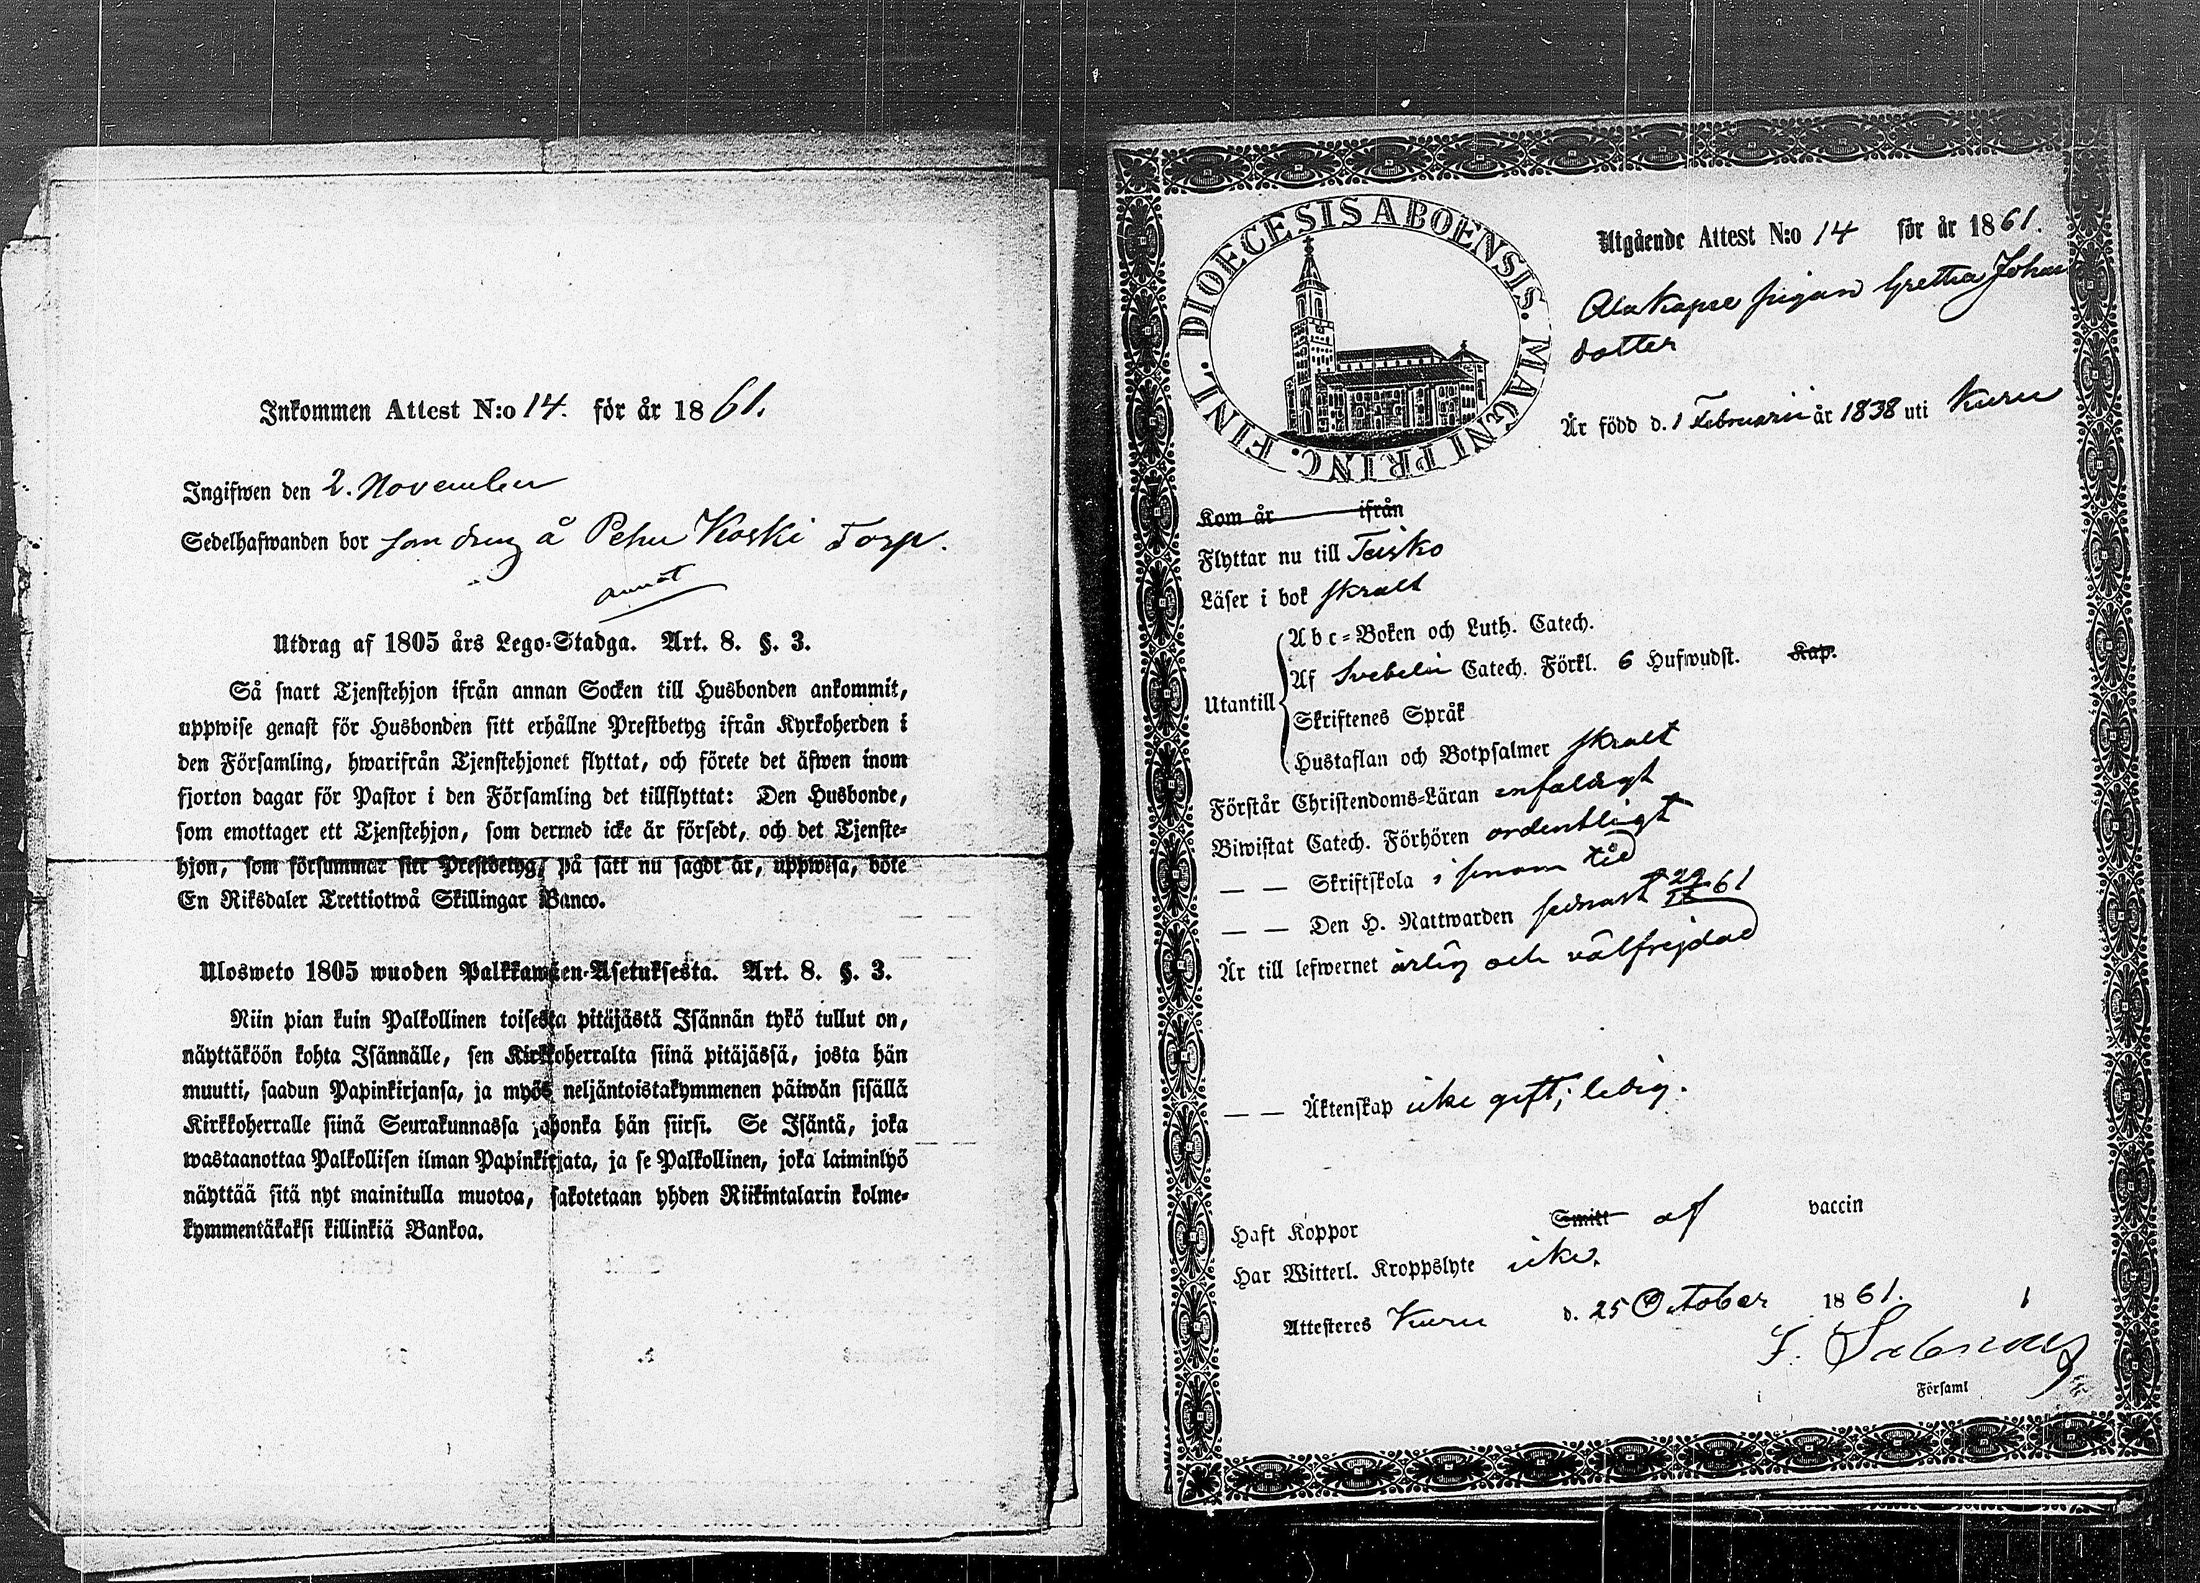 Inkommen Attest N:o 14. för år 1861.
Ingifwen den 2. November
Sedelhafwanden bor som dreng å Pehu Koski Torp.
Utdrag af 1805 års Lego-Stadga. Art. 8. §. 3.
Så snart Tjenstehjon ifrån annan Socken till Husbonden ankommit,
uppwise genast för Husbonden sitt erhållne Prestbetyg ifrån Kyrkoherden i
den Församling, hwarifrån Tjenstehjonet flyttat, och förete det äfwen inom
fjorton dagar för Pastor i den Församling det tillflyttat: Den Husbonde,
som emottager ett Tjenstehjon, som dermed icke är försedt, och det Tjenste-
hjon, som försummar sitt Prestbetyg, på sätt nu sagdt är, uppwisa, böte
En Riksdaler Trettiotwå Skillingar Banco.
Ulosweto 1805 wuoden Palkkawäen-Asetuksesta. Art. 8. §. 3.
Niin pian kuin Palkollinen toisesta pitäjästä Isännän tykö tullut on,
näyttäköön kohta Isännälle, sen Kirkkoherralta siinä pitäjässä, josta hän
muutti, saadun Papinkirjansa, ja myös neljäntoistakymmenen päiwän sisällä
Kirkkoherralle siinä Seurakunnassa johonka hän siirsi. Se Isäntä, joka
wastaanottaa Palkollisen ilman Papinkirjata, ja se Palkollinen, joka laiminlyö
näyttää sitä nyt mainitulla muotoa, sakotetaan yhden Riikintalarin kolme-
kymmentäkaksi killinkiä Bankoa.
FINL. DIOECESIS ABOENSIS. MAGNI PRINC.
Utgående Attest N:o 14 för år 1861.
pigan Gretha Johans
dotter
Är född d. 1 Februarii år 1838 uti Kuru
Kom år ifrån
Flyttar nu till Teisko
Läser i bok skralt
Utantill
Abc-Boken och Luth. Catech.
Af Svebelii Catech. Förkl. 6 Hufwudst. Kap.
Skriftenes Språk
Hustaflan och Botpsalmer skralt
Förstår Christendoms-Läran enfaldigt
Biwistat Catech. Förhören ordentligt
— — Skriftskola i sinom tid
— — Den H. Nattwarden sednast 29/IX 61
Är till lefwernet ärlig och välfrejdad
— — Äktenskap icke gift; ledig.
Haft Koppor Smitt af vaccin
Har Witterl. Kroppslyte icke.
Attesteres Kuru d. 25 October 1861.
i Församl